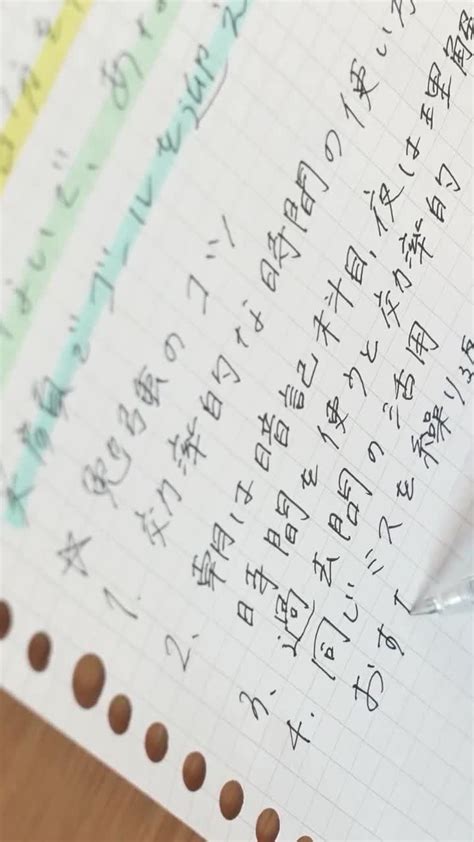 ないで、あ
でゴールを
☆ 勉強のコツ
1. 効率的な時間の使い方
2. 朝は暗記科目、夜は理解
時間を使うと効率的
3. 過去問の活用
4. 同じミスを繰り返
おす